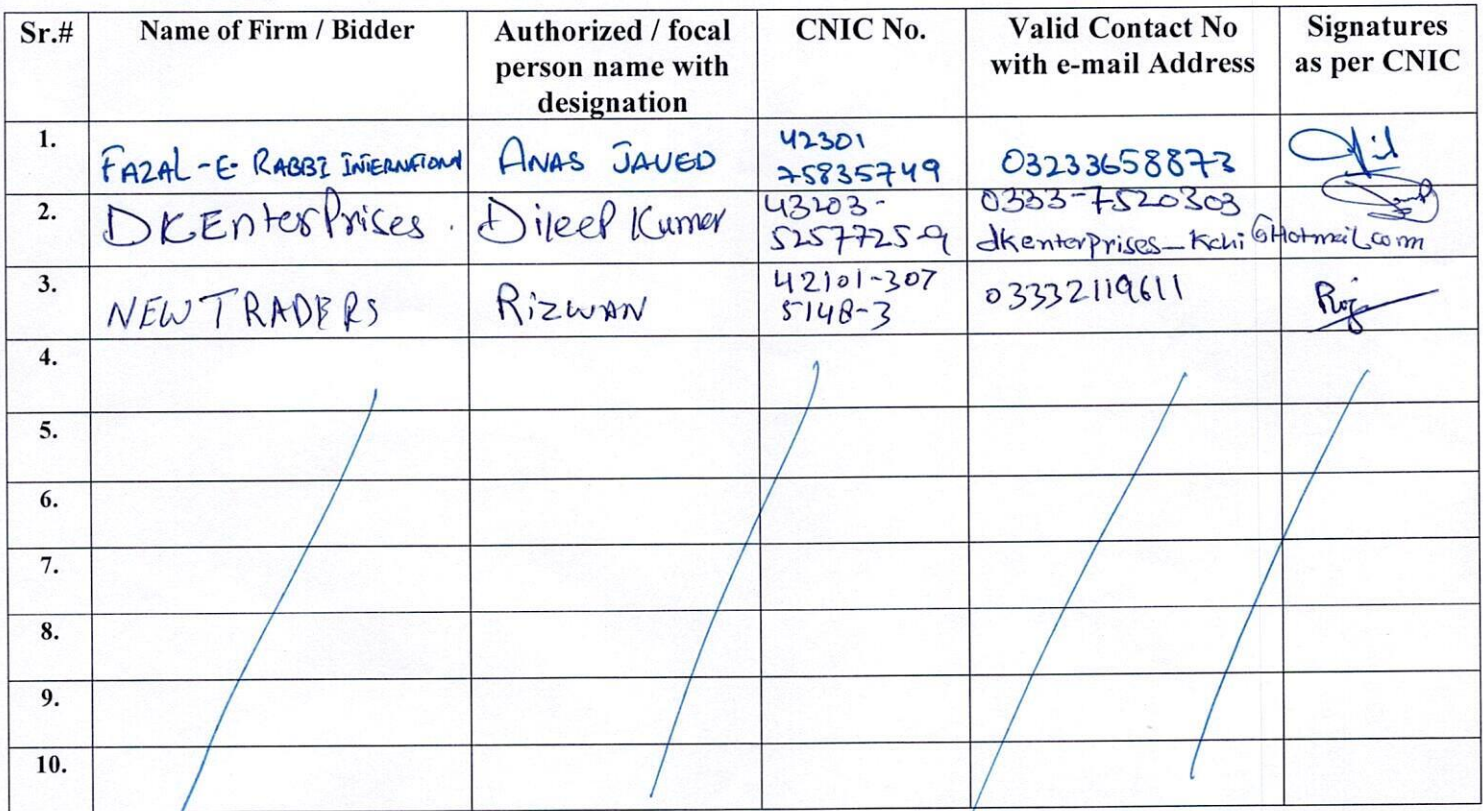 Sr.# Name of Firm / Bidder Authorized / focal person name with designation CNIC No. Valid Contact No with e-mail Address Signatures as per CNIC
1. FAZAL-E-RABBI INTERNATIONAL ANAS JAVED 42301 75835749 03233658873
2. DKEnterPrises. Dileep Kumer 43203-5257725-9 0333-7520303 dkenterprises_Kchi@Hotmail.com
3. NEW TRADERS RIZWAN 42101-307 5148-3 03332119611
4.
5.
6.
7.
8.
9.
10.